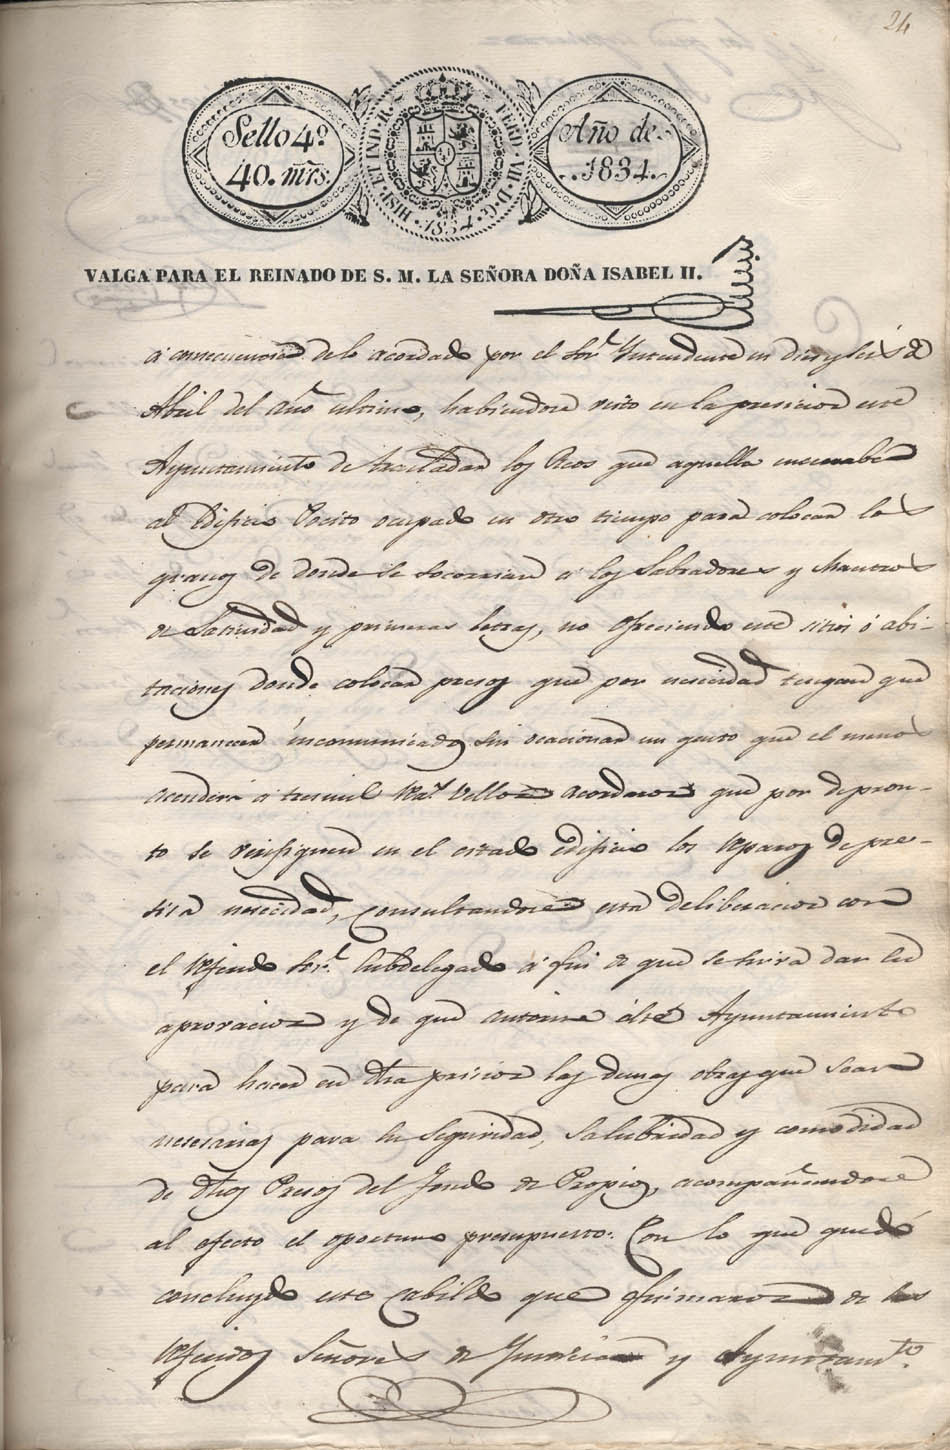 24
Sello 4º
40. mrs.
HISP. ET IND. R.
FERD. VII. D. G.
1834
Año de
1834.
VALGA PARA EL REINADO DE S. M. LA SEÑORA DOÑA ISABEL II.
á consecuencia de lo acordado por el Sor. Yntendente en diez y seis de
Abril del año ultimo, habiendose visto en la precicion este
Ayuntamiento de trasladar los Reos que aquella encerraba
al Edificio Pocito ocupado en otro tiempo para colocar los
granos de donde se socorrian á los Labradores y Maestros
de Latinidad y primeras letras, no ofreciendo este sitios ó abi-
taciones donde colocar presos que por necesidad tengan que
permanecer incomunicados sin ocacionar un gasto que el menos
acenderá á tresmil Rs. Vellon acordaron que por depron-
to se verifiquen en el citado Edificio los reparos de pre-
sisa necesidad, consultandose esta deliberacion con
el referido Sor. Subdelegado á fin de que se sirva dar su
aprovacion y de que autorise á este Ayuntamiento
para hacer en dha pricion las demas obras que sean
necesarias para la seguridad, salubridad y comodidad
de dhos Presos del fondo de Propios, acompañandose
al efecto el oportuno presupuesto. Con lo que quedó
concluydo este Cabildo que firmaron de los
referidos Señores de Justicia y Ayuntamto.